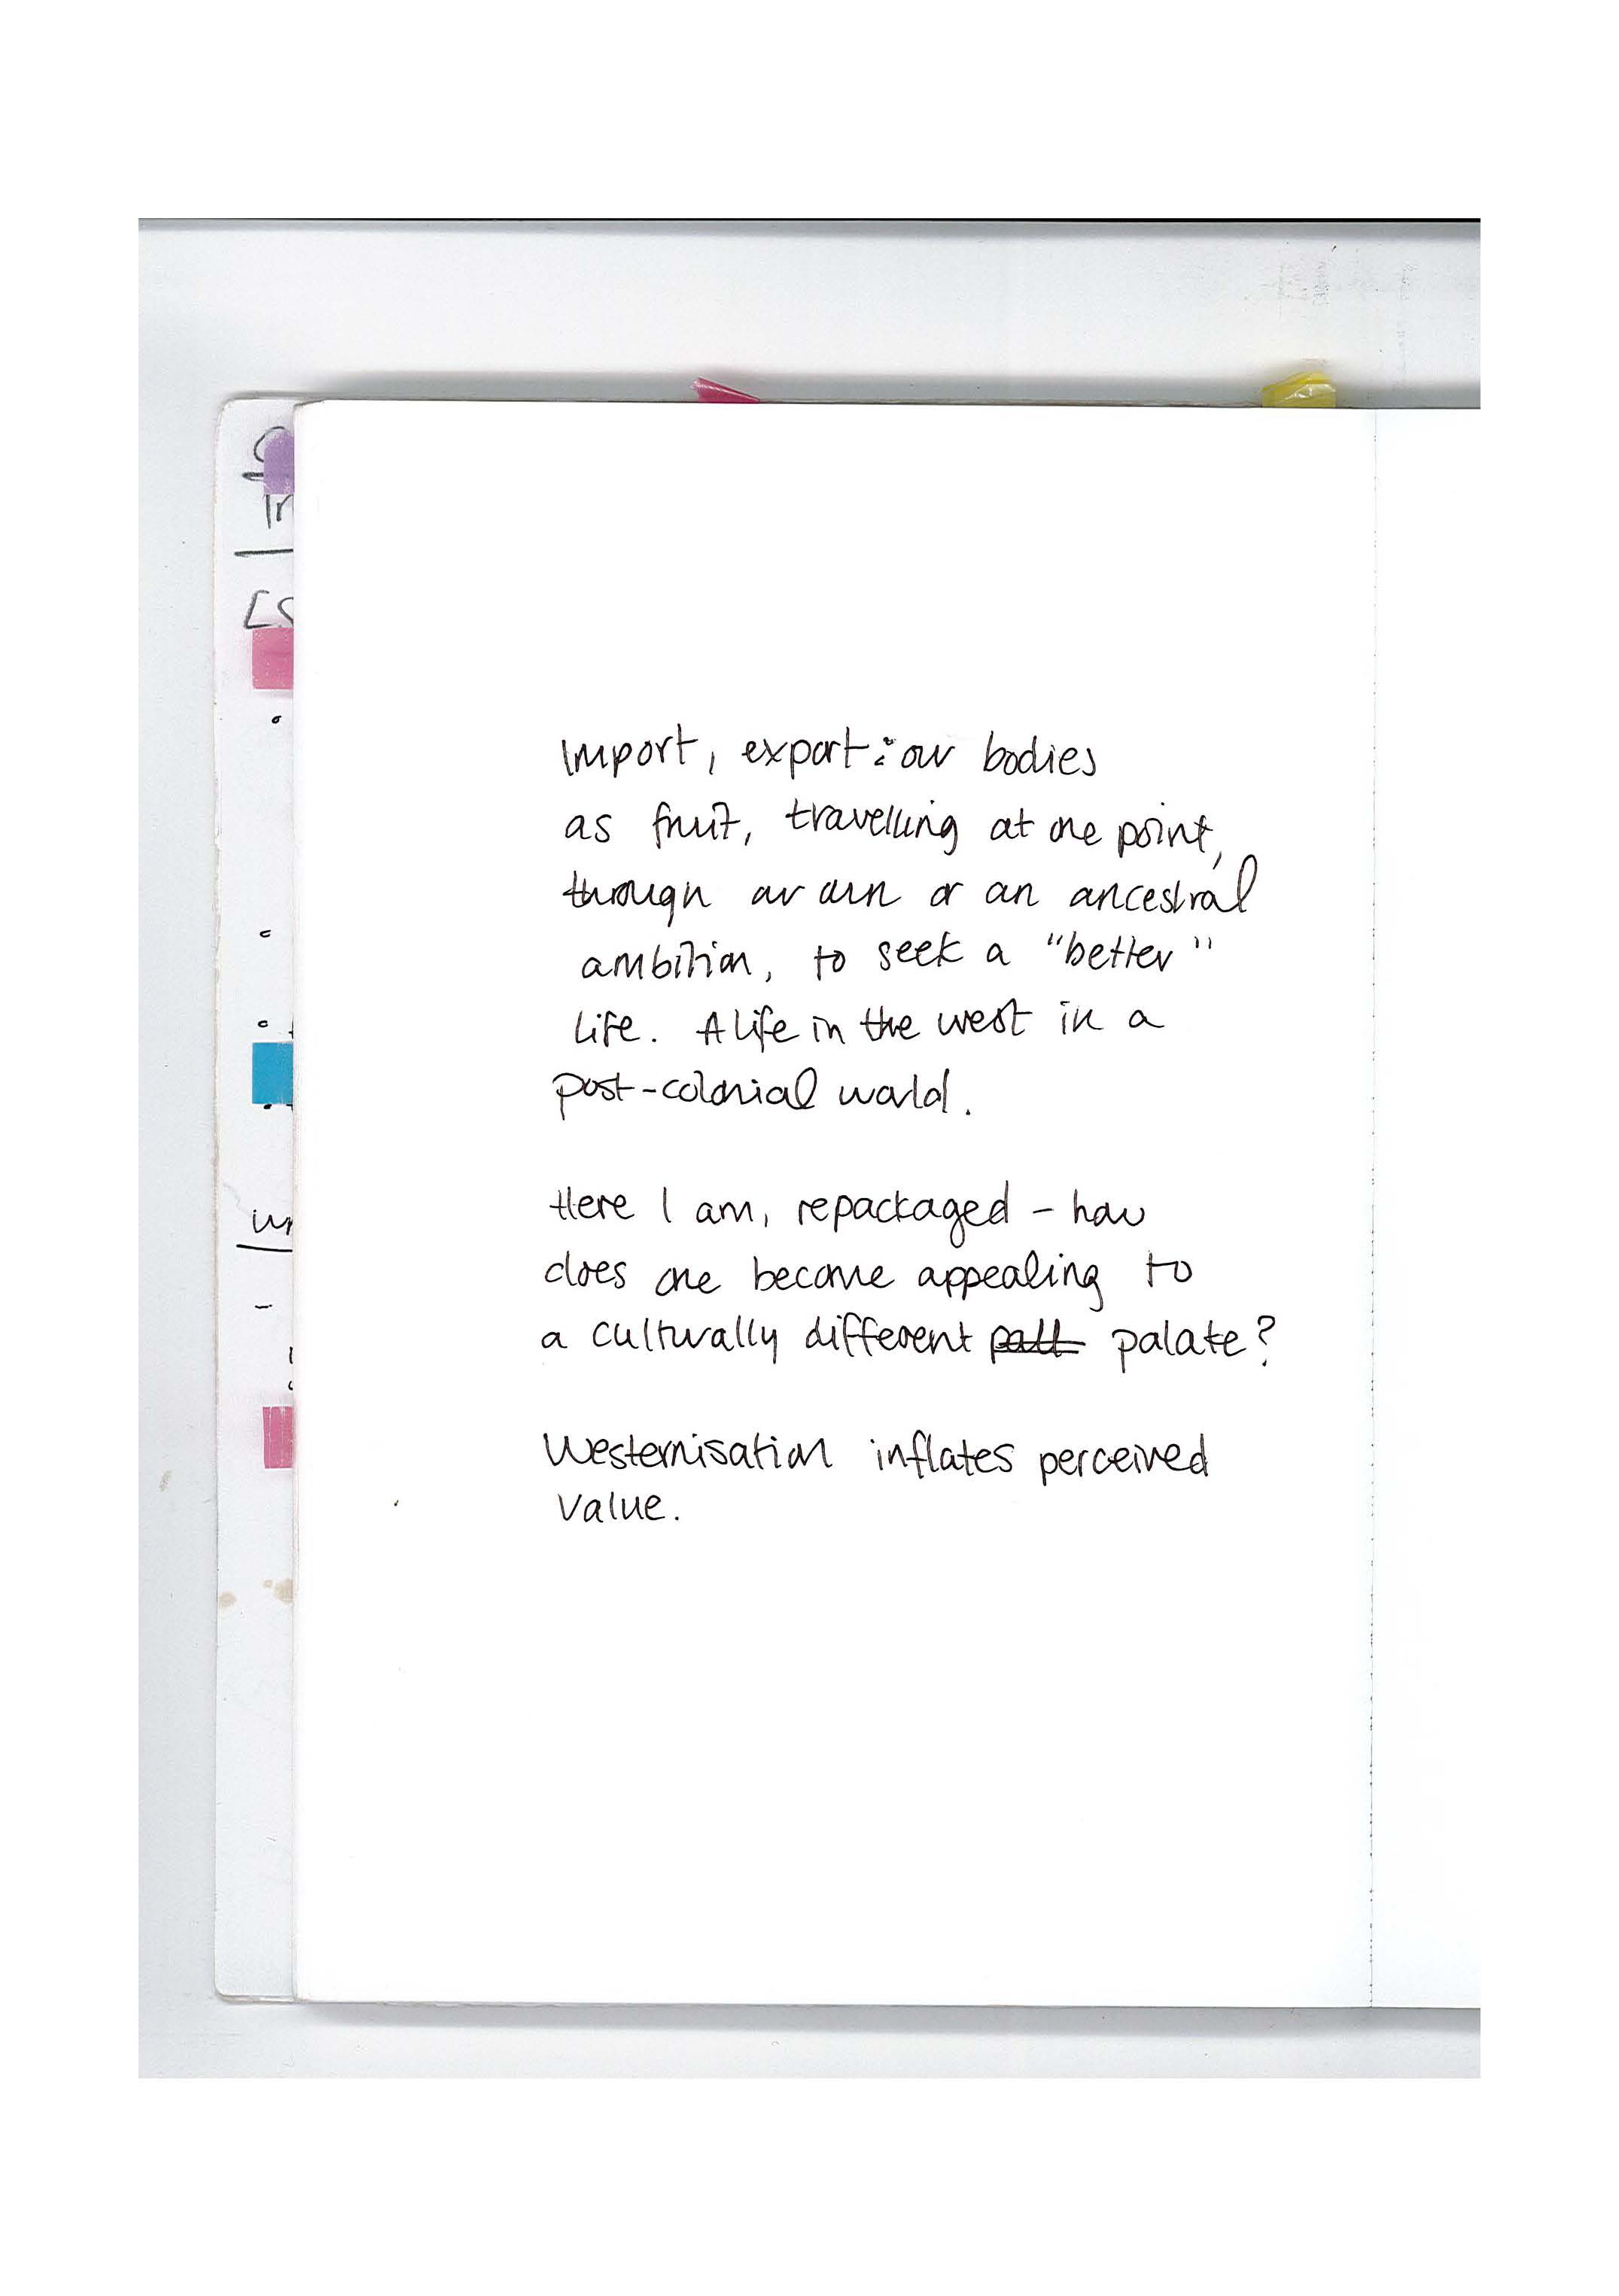 Import, export: our bodies
as fruit, travelling at one point,
through our own or an ancestral
ambition, to seek a "better"
life. A life in the west in a
post-colonial world.
Here I am, repackaged – how
does one become appealing to
a culturally different palate?
Westernisation inflates perceived
value.